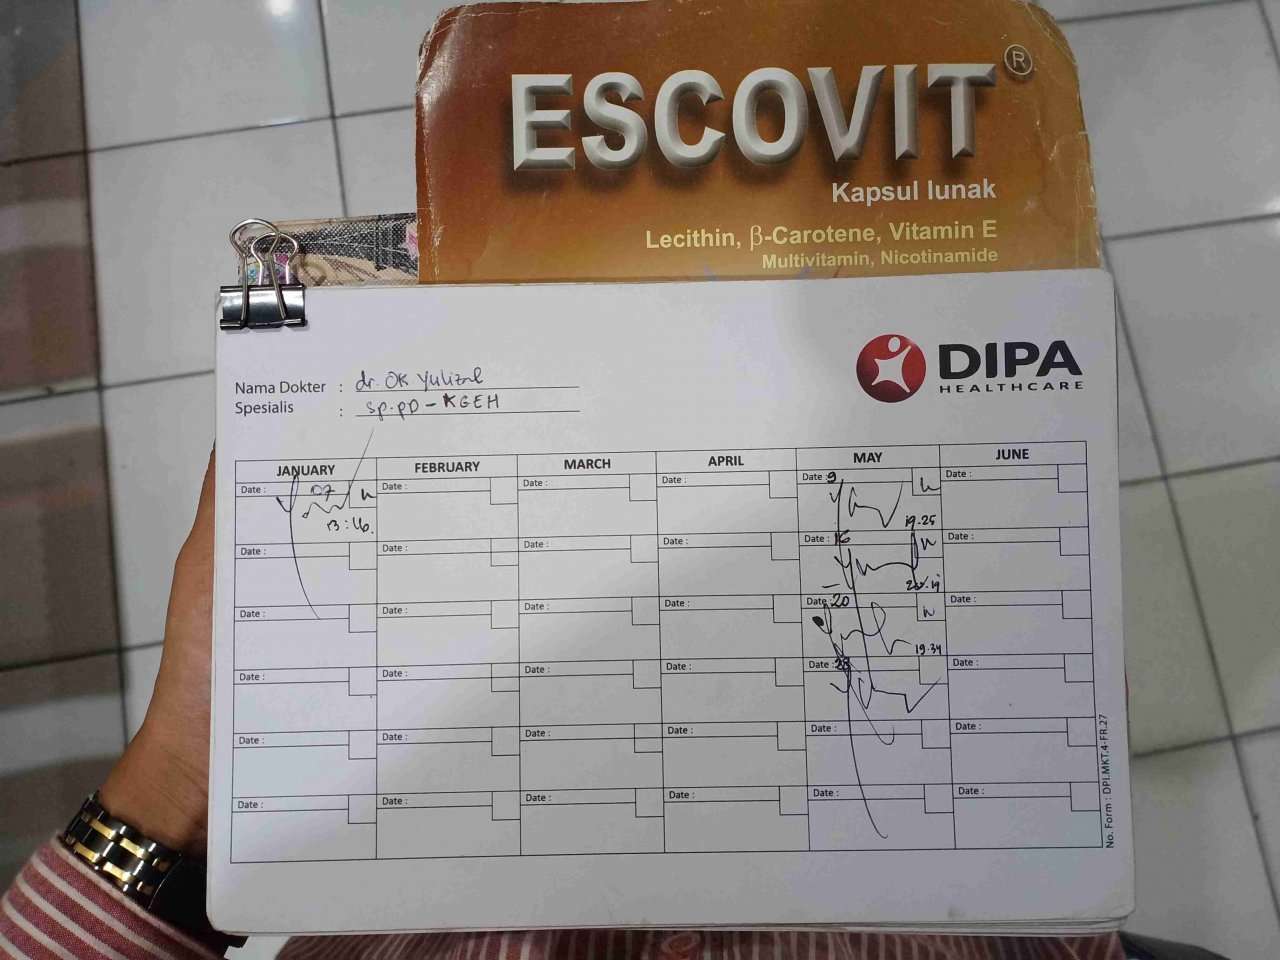 ESCOVIT ®
Kapsul lunak
Lecithin, β-Carotene, Vitamin E
Multivitamin, Nicotinamide
DIPA
HEALTHCARE
Nama Dokter : dr. OK Yulizal
Spesialis : Sp.PD - KGEH
JANUARY FEBRUARY MARCH APRIL MAY JUNE
Date : 07 Date : Date : Date : Date : 9 Date :
13:16.
19.25
Date : Date : Date : Date : Date : 16 Date :
20.19
Date : Date : Date : Date : Date : 20 Date :
19.34
Date : Date : Date : Date : Date : 28 Date :
Date : Date : Date : Date : Date : Date :
Date : Date : Date : Date : Date : Date :
No. Form : DPI.MKT.4-FR.27